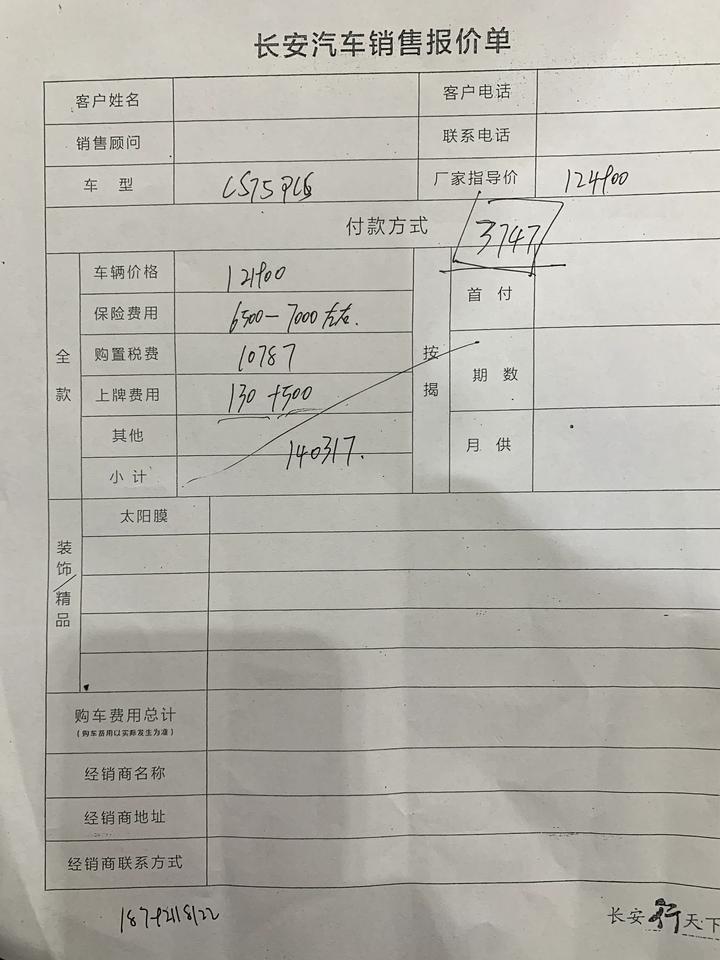 长安汽车销售报价单
客户姓名 客户电话
销售顾问 联系电话
车 型 CS75PLUS 厂家指导价 124900
付款方式 3747
全款 车辆价格 121900 按揭 首 付
保险费用 6500-7000左右.
购置税费 10787 期 数
上牌费用 130+500
其他 月 供
140317.
小 计
装饰/精品 太阳膜
购车费用总计
(购车费用以实际发生为准)
经销商名称
经销商地址
经销商联系方式
长安行天下